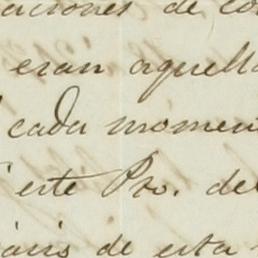 aciones de co
eran aquella
cada momen
este Pro. de
ario de esta